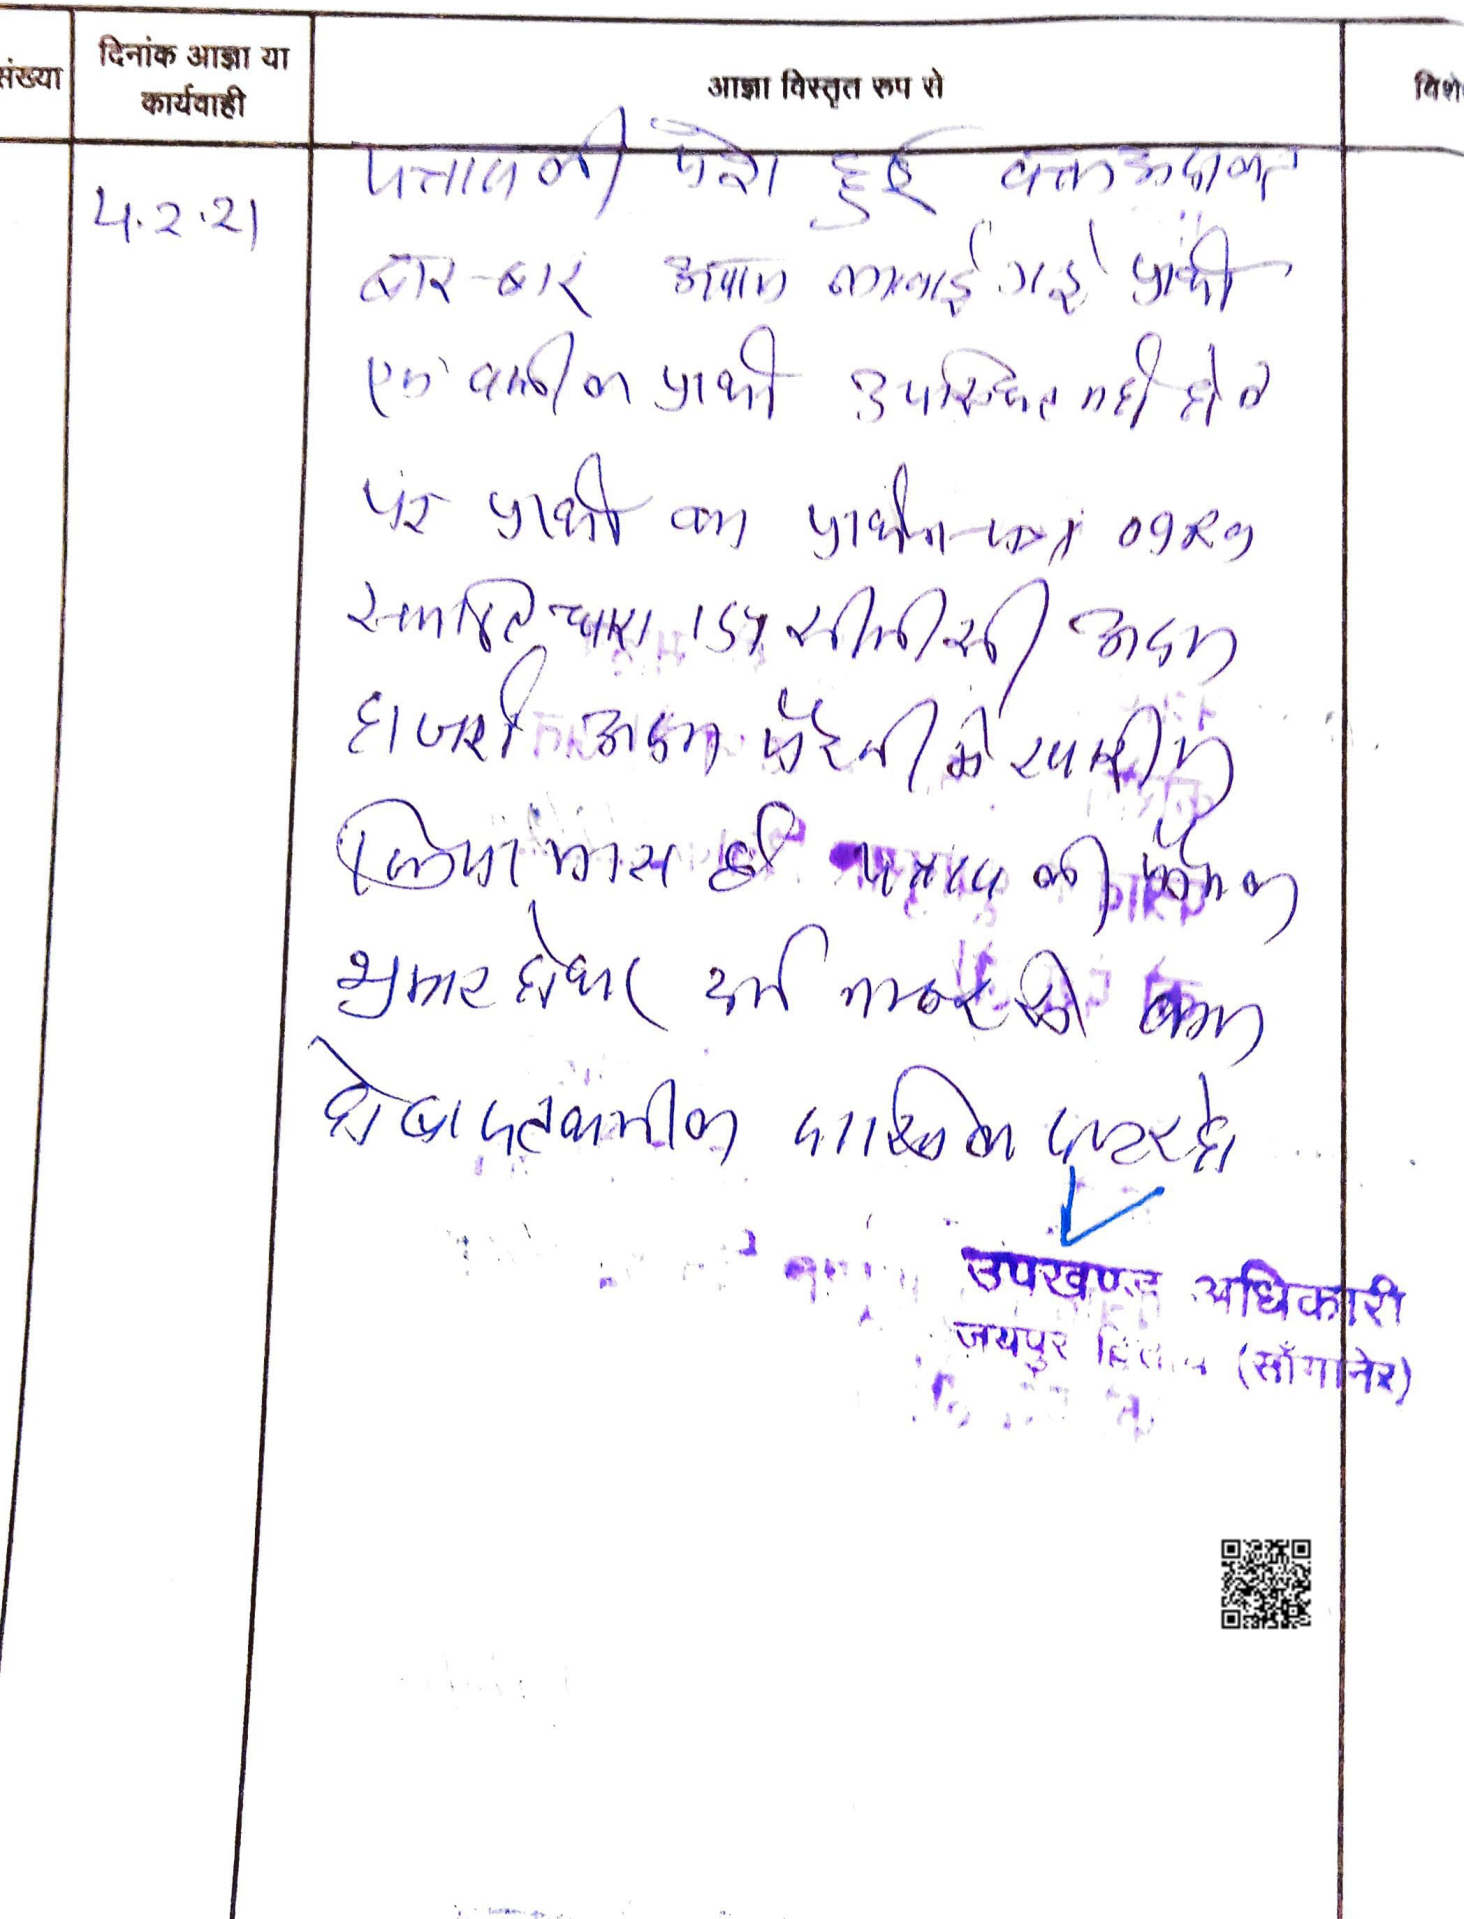 संख्या
दिनांक आज्ञा या
कार्यवाही
आज्ञा विस्तृत रूप से
विशे
4.2.21
पत्रावली पेश हुई वक्त अदालत
बार-बार आवाज लगवाई गई प्रार्थी
एवं वकील प्रार्थी उपस्थित नहीं होने
पर प्रार्थी का प्रार्थना-पत्र
धारा 151 सीपीसी अदम
हाजरी अदम पैरवी में खारीज
किया जाता है पत्रावली फैसल
शुमार होकर दर्ज नम्बर से कम
हो बाद तकमील दाखिल दफ्तर हो
उपखण्ड अधिकारी
जयपुर (साँगानेर)